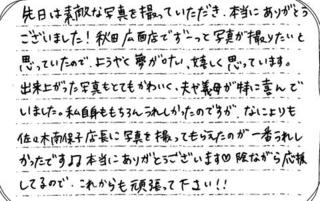 先日は素敵な写真を撮っていただき、本当にありがとう
ございました！秋田広面店でずーっと写真が撮りたいと
思っていたので、ようやく夢が叶い、嬉しく思っています。
出来上がった写真もとてもかわいく、夫や義母が特に喜んで
いました。私自身ももちろんうれしかったのですが、なによりも
佐々木南保子店長に写真を撮ってもらえたのが一番うれし
かったです♫本当にありがとうございます♡陰ながら応援
してるので、これからも頑張って下さい!!